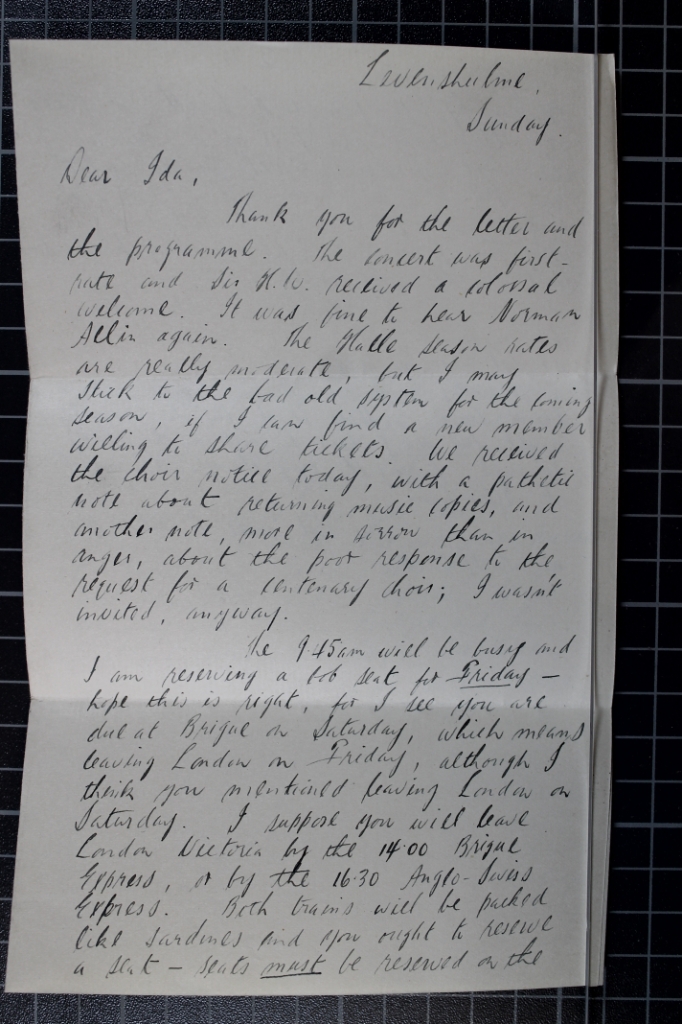 Levenshulme,
Sunday.
Dear Ida,
Thank you for the letter and
the programme. The concert was first-
rate and Sir H.W. received a colossal
welcome. It was fine to hear Norman
Allin again. The Halle season rates
are really moderate, but I may
stick to the bad old system for the coming
season, if I can find a new member
willing to share tickets. We received
the choir notice today, with a pathetic
note about returning music copies, and
another note, more in sorrow than in
anger, about the poor response to the
request for a centenary choir; I wasn't
invited, anyway.
The 9.45am will be busy and
I am reserving a bob seat for Friday –
hope this is right, for I see you are
due at Brigue on Saturday, which means
leaving London on Friday, although I
think you mentioned leaving London on
Saturday. I suppose you will leave
London Victoria by the 14.00 Brigue
Express, or by the 16.30 Anglo-Swiss
Express. Both trains will be packed
like sardines and you ought to reserve
a seat – seats must be reserved on the